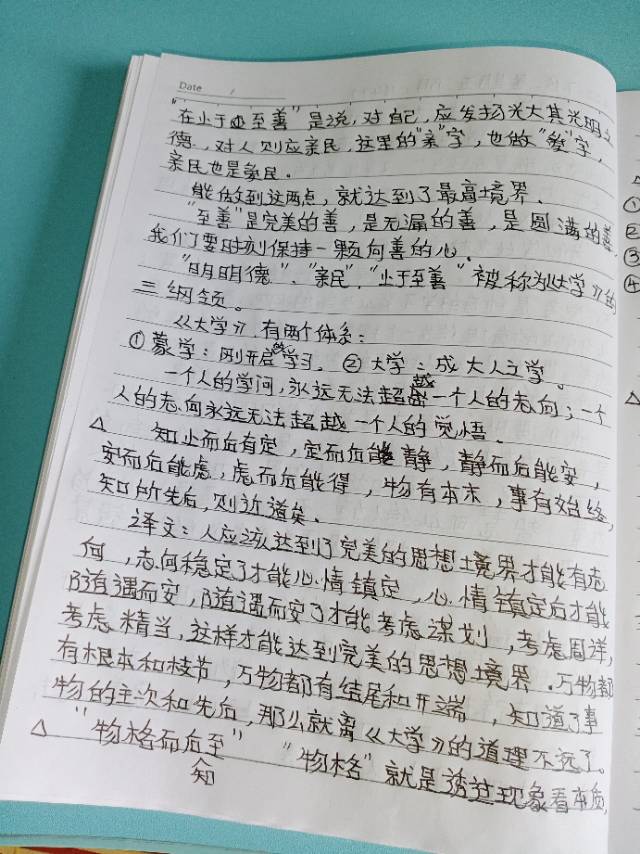 Date
"在止于至善"是说,对自己,应发扬光大其光明之
德,对人则应亲民,这里的"亲"字,也做"爱"字,
亲民也是爱民。
能做到这两点,就达到了最高境界。
"至善"是完美的善,是无漏的善,是圆满的善,
我们要时刻保持一颗向善的心。
"明明德"、"亲民"、"止于至善"被称为《大学》的
三纲领。
《大学》有两个体系:
①蒙学:刚开启学习。②大学:成大人之学。
一个人的学问,永远无法超越一个人的志向;一个
人的志向永远无法超越一个人的觉悟。
△ 知止而后有定,定而后能静,静而后能安,
安而后能虑,虑而后能得,物有本末,事有始终,
知所先后,则近道矣。
译文:人应该达到了完美的思想境界才能有志
向,志向稳定了才能心情镇定,心情镇定后才能
随遇而安,随遇而安了才能考虑谋划,考虑周详,
考虑精当,这样才能达到完美的思想境界。万物都
有根本和枝节,万物都有结尾和开端,知道了事
物的主次和先后,那么就离《大学》的道理不远了。
△ "物格而后知至" "物格"就是透过现象看本质,
①
②
③
④
△